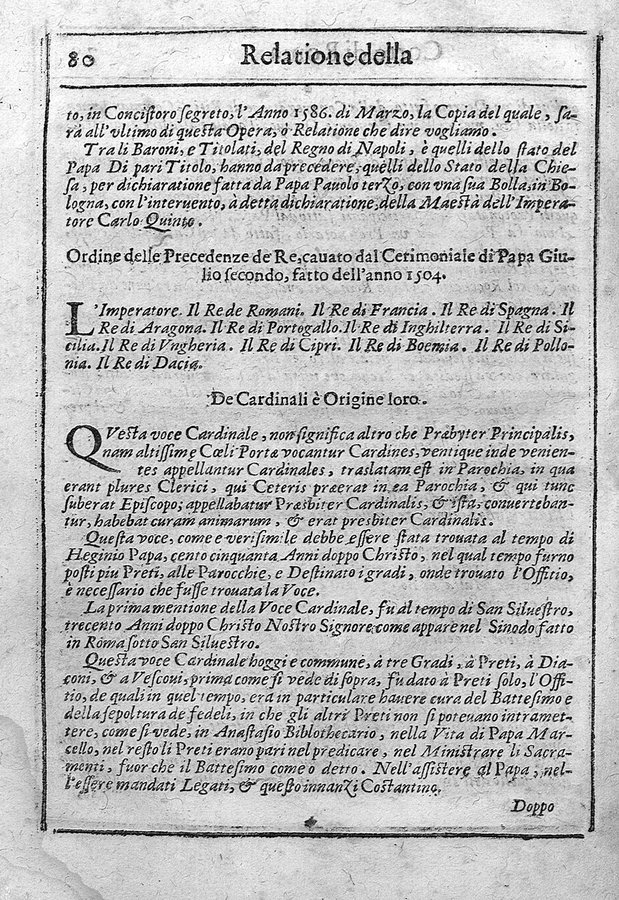 80 Relatione della
to, in Concistoro segreto, l'Anno 1586. di Marzo, la Copia del quale, sa-
rà all'vltimo di questa Opera, ò Relatione che dire vogliamo.
Tra li Baroni, e Titolati, del Regno di Napoli, è quelli dello stato del
Papa Di pari Titolo, hanno da precedere, quelli dello Stato della Chie-
sa, per dichiaratione fatta da Papa Pauolo terzo, con vna sua Bolla, in Bo-
logna, con l'interuento, à detta dichiaratione, della Maestà dell'Impera-
tore Carlo Quinto.
Ordine delle Precedenze de Re, cauato dal Cerimoniale di Papa Giu-
lio secondo, fatto dell'anno 1504.
L'Imperatore. Il Re de Romani. Il Re di Francia. Il Re di Spagna. Il
Re di Aragona. Il Re di Portogallo. Il Re di Inghilterra. Il Re di Si-
cilia. Il Re di Vngheria. Il Re di Cipri. Il Re di Boemia. Il Re di Pollo-
nia. Il Re di Dacia.
De Cardinali è Origine loro.
QVesta voce Cardinale, non significa altro che Præbyter Principalis,
nam altissime Cœli Portæ vocantur Cardines, ventique inde venien-
tes appellantur Cardinales, translatam est in Parochia, in qua
erant plures Clerici, qui Ceteris præerat in ea Parochia, & qui tunc
suberat Episcopo; appellabatur Præsbiter Cardinalis, & ista, conuerteban-
tur, habebat curam animarum, & erat presbiter Cardinalis.
Questa voce, come e verisimile debbe essere stata trouata al tempo di
Heginio Papa, cento cinquanta Anni doppo Christo, nel qual tempo furno
posti piu Preti, alle Parocchie, e Destinato i gradi, onde trouato l'Offitio,
è necessario che fusse trouata la Voce.
La prima mentione della Voce Cardinale, fù al tempo di San Siluestro,
trecento Anni doppo Christo Nostro Signore come appare nel Sinodo fatto
in Roma sotto San Siluestro.
Questa voce Cardinale hoggi e commune, à tre Gradi, à Preti, à Dia-
coni, & a Vescoui, prima come si vede di sopra, fu dato à Preti solo, l'Offi-
tio, de quali in quel tempo, era in particulare hauere cura del Battesimo e
della sepoltura de fedeli, in che gli altri Preti non si poteuano intramet-
tere, come si vede, in Anastasio Biblothecario, nella Vita di Papa Mar-
cello, nel resto li Preti erano pari nel predicare, nel Ministrare li Sacra-
menti, fuor che il Battesimo come o detto. Nell'assistere al Papa, nel-
l'essere mandati Legati, & questo innanzi Costantino.
Doppo